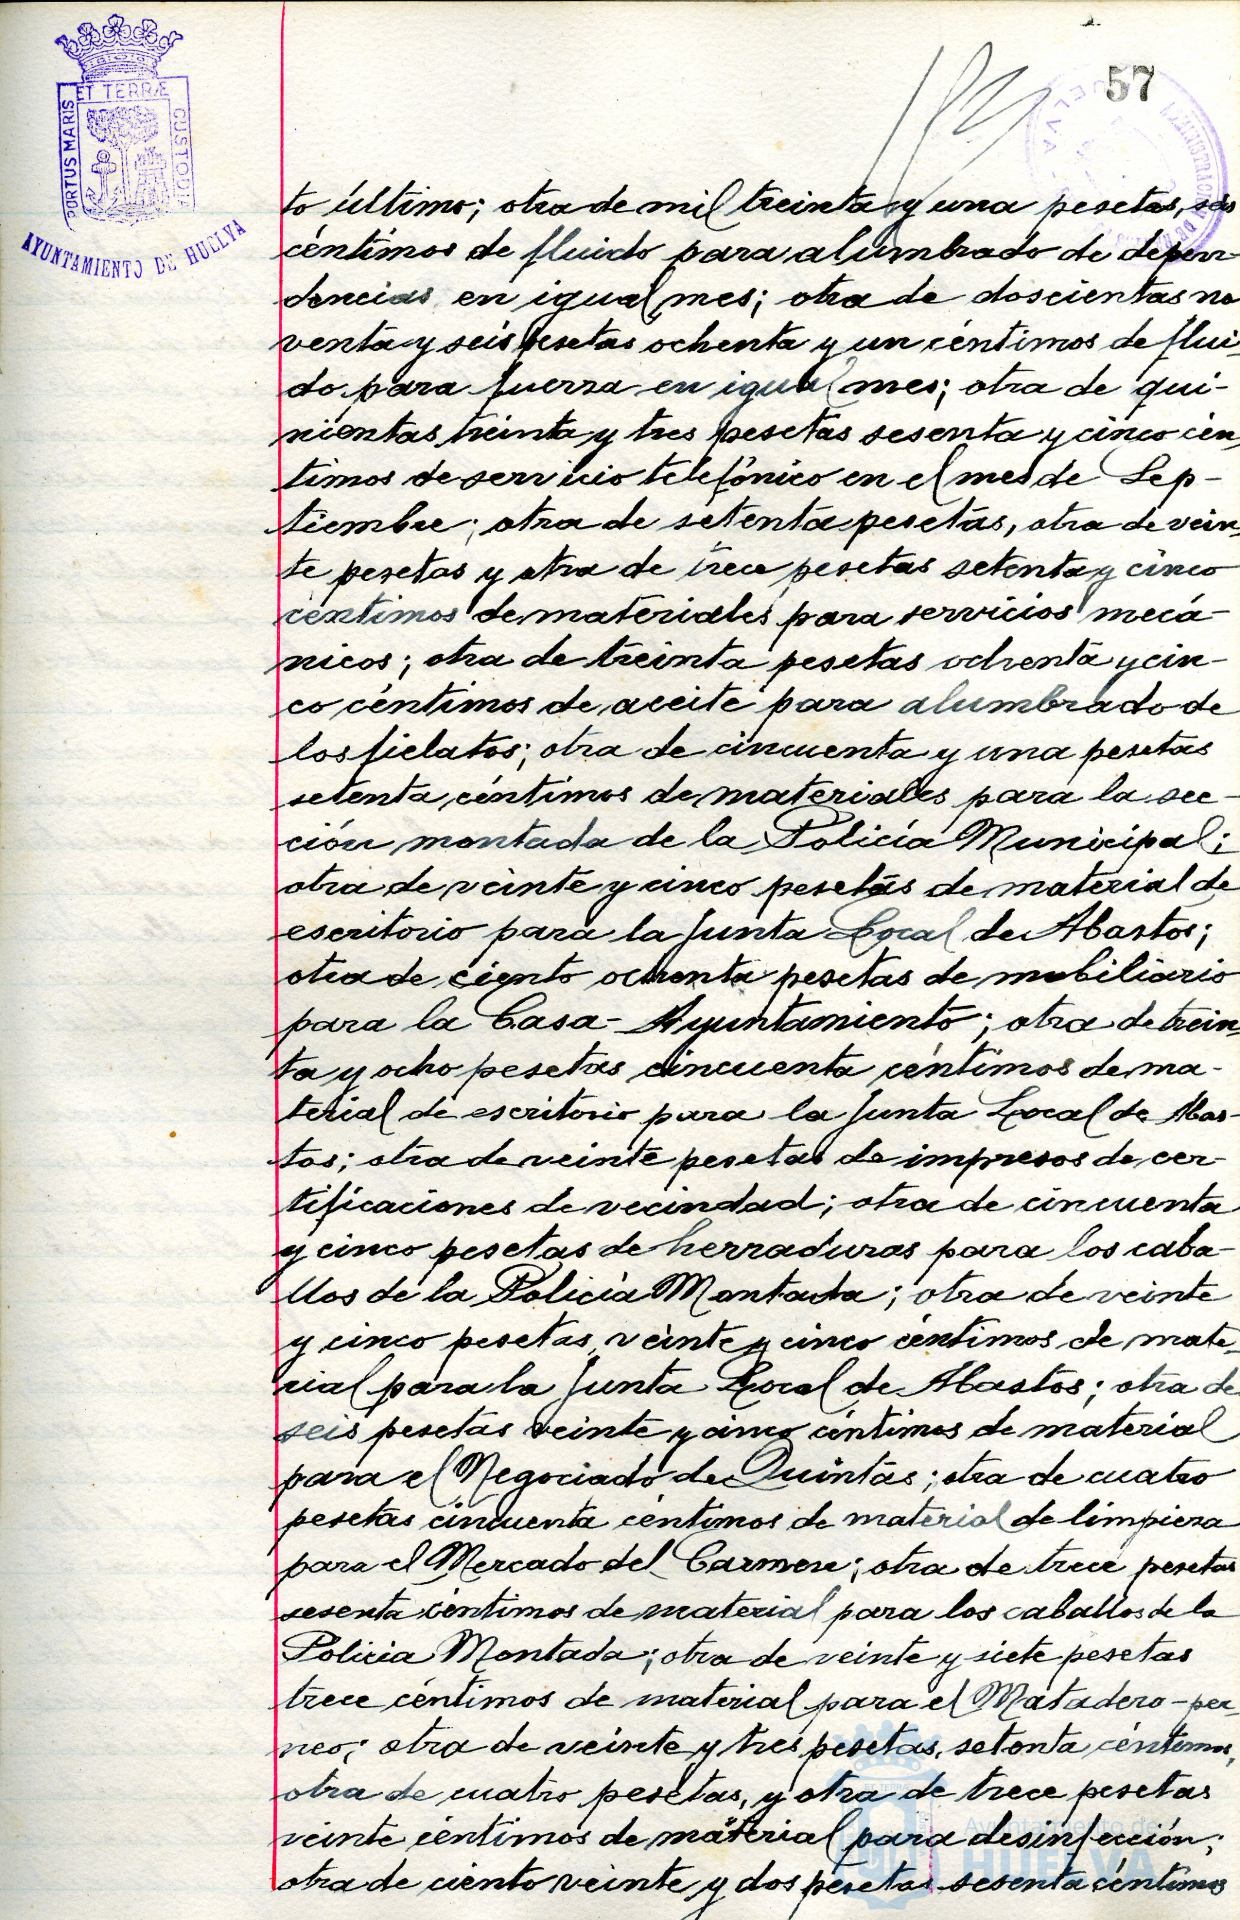 57
PORTUS MARIS ET TERRÆ CUSTODIA
AYUNTAMIENTO DE HUELVA
to último; otra de mil treinta y una pesetas, seis
céntimos de fluido para alumbrado de depen-
dencias en igual mes; otra de doscientas no
venta y seis pesetas ochenta y un céntimos de flui-
do para fuerza en igual mes; otra de qui-
nientas treinta y tres pesetas sesenta y cinco cén-
timos de servicio telefónico en el mes de Sep-
tiembre; otra de setenta pesetas, otra de vein-
te pesetas y otra de trece pesetas setenta y cinco
céntimos de materiales para servicios mecá-
nicos; otra de treinta pesetas ochenta y cin-
co céntimos de aceite para alumbrado de
los fielatos; otra de cincuenta y una pesetas
setenta céntimos de materiales para la sec-
ción montada de la Policía Municipal;
otra de veinte y cinco pesetas de material de
escritorio para la Junta Local de Abastos;
otra de ciento ochenta pesetas de mobiliario
para la Casa-Ayuntamiento; otra de trein-
ta y ocho pesetas cincuenta céntimos de ma-
terial de escritorio para la Junta Local de Abas-
tos; otra de veinte pesetas de impresos de cer-
tificaciones de vecindad; otra de cincuenta
y cinco pesetas de herraduras para los caba-
llos de la Policía Montada; otra de veinte
y cinco pesetas, veinte y cinco céntimos de mate-
rial para la Junta Local de Abastos; otra de
seis pesetas veinte y cinco céntimos de material
para el Negociado de Quintas; otra de cuatro
pesetas cincuenta céntimos de material de limpieza
para el Mercado del Carmen; otra de trece pesetas
sesenta céntimos de material para los caballos de la
Policia Montada; otra de veinte y siete pesetas
trece céntimos de material para el Matadero-per-
neo; otra de veinte y tres pesetas, setenta céntimos,
otra de cuatro pesetas, y otra de trece pesetas
veinte céntimos de material para desinfección;
otra de ciento veinte y dos pesetas sesenta céntimos
Ayuntamiento de
HUELVA